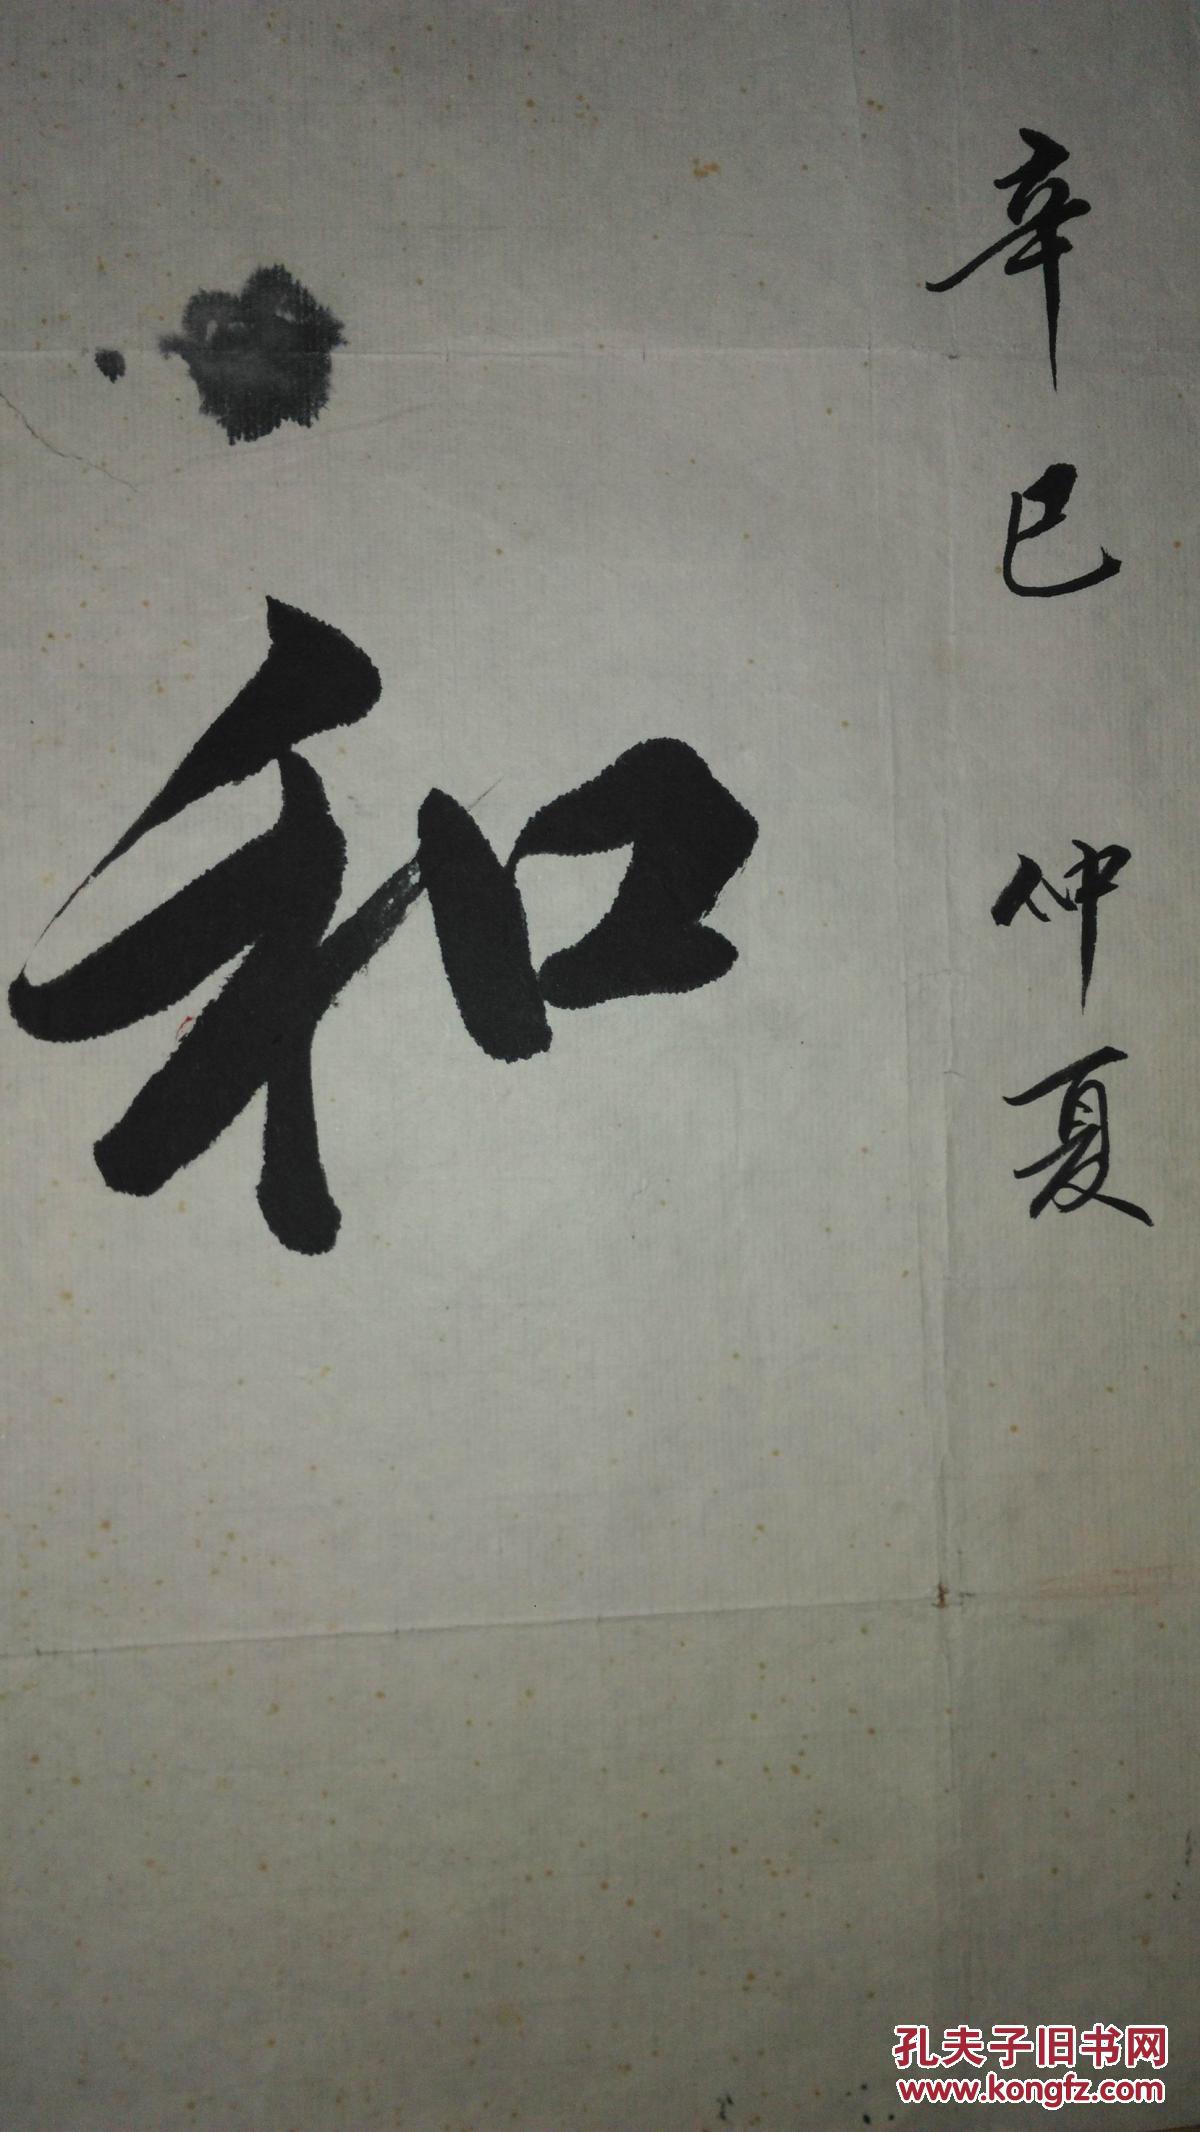 辛巳仲夏
和
孔夫子旧书网
www.kongfz.com